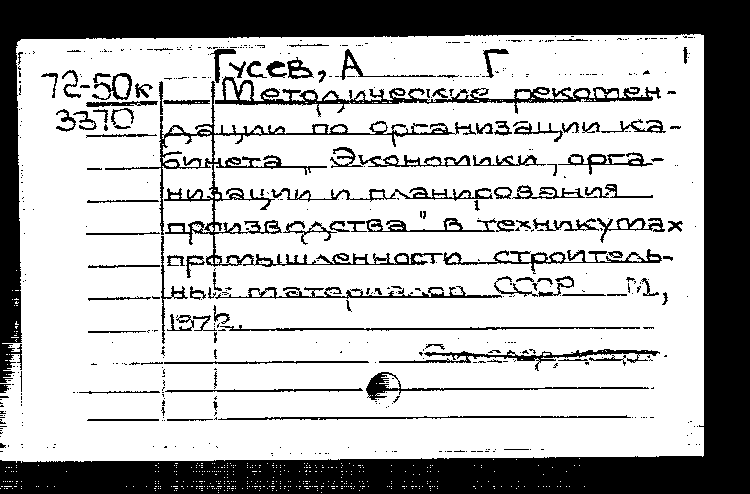 Гусев, А Г 1
72-50к
3370
Методические рекомен-
дации по организации ка-
бинета „Экономики, орга-
низации и планирования
производства" в техникумах
промышленности строитель-
ных материалов СССР. М.,
1972.